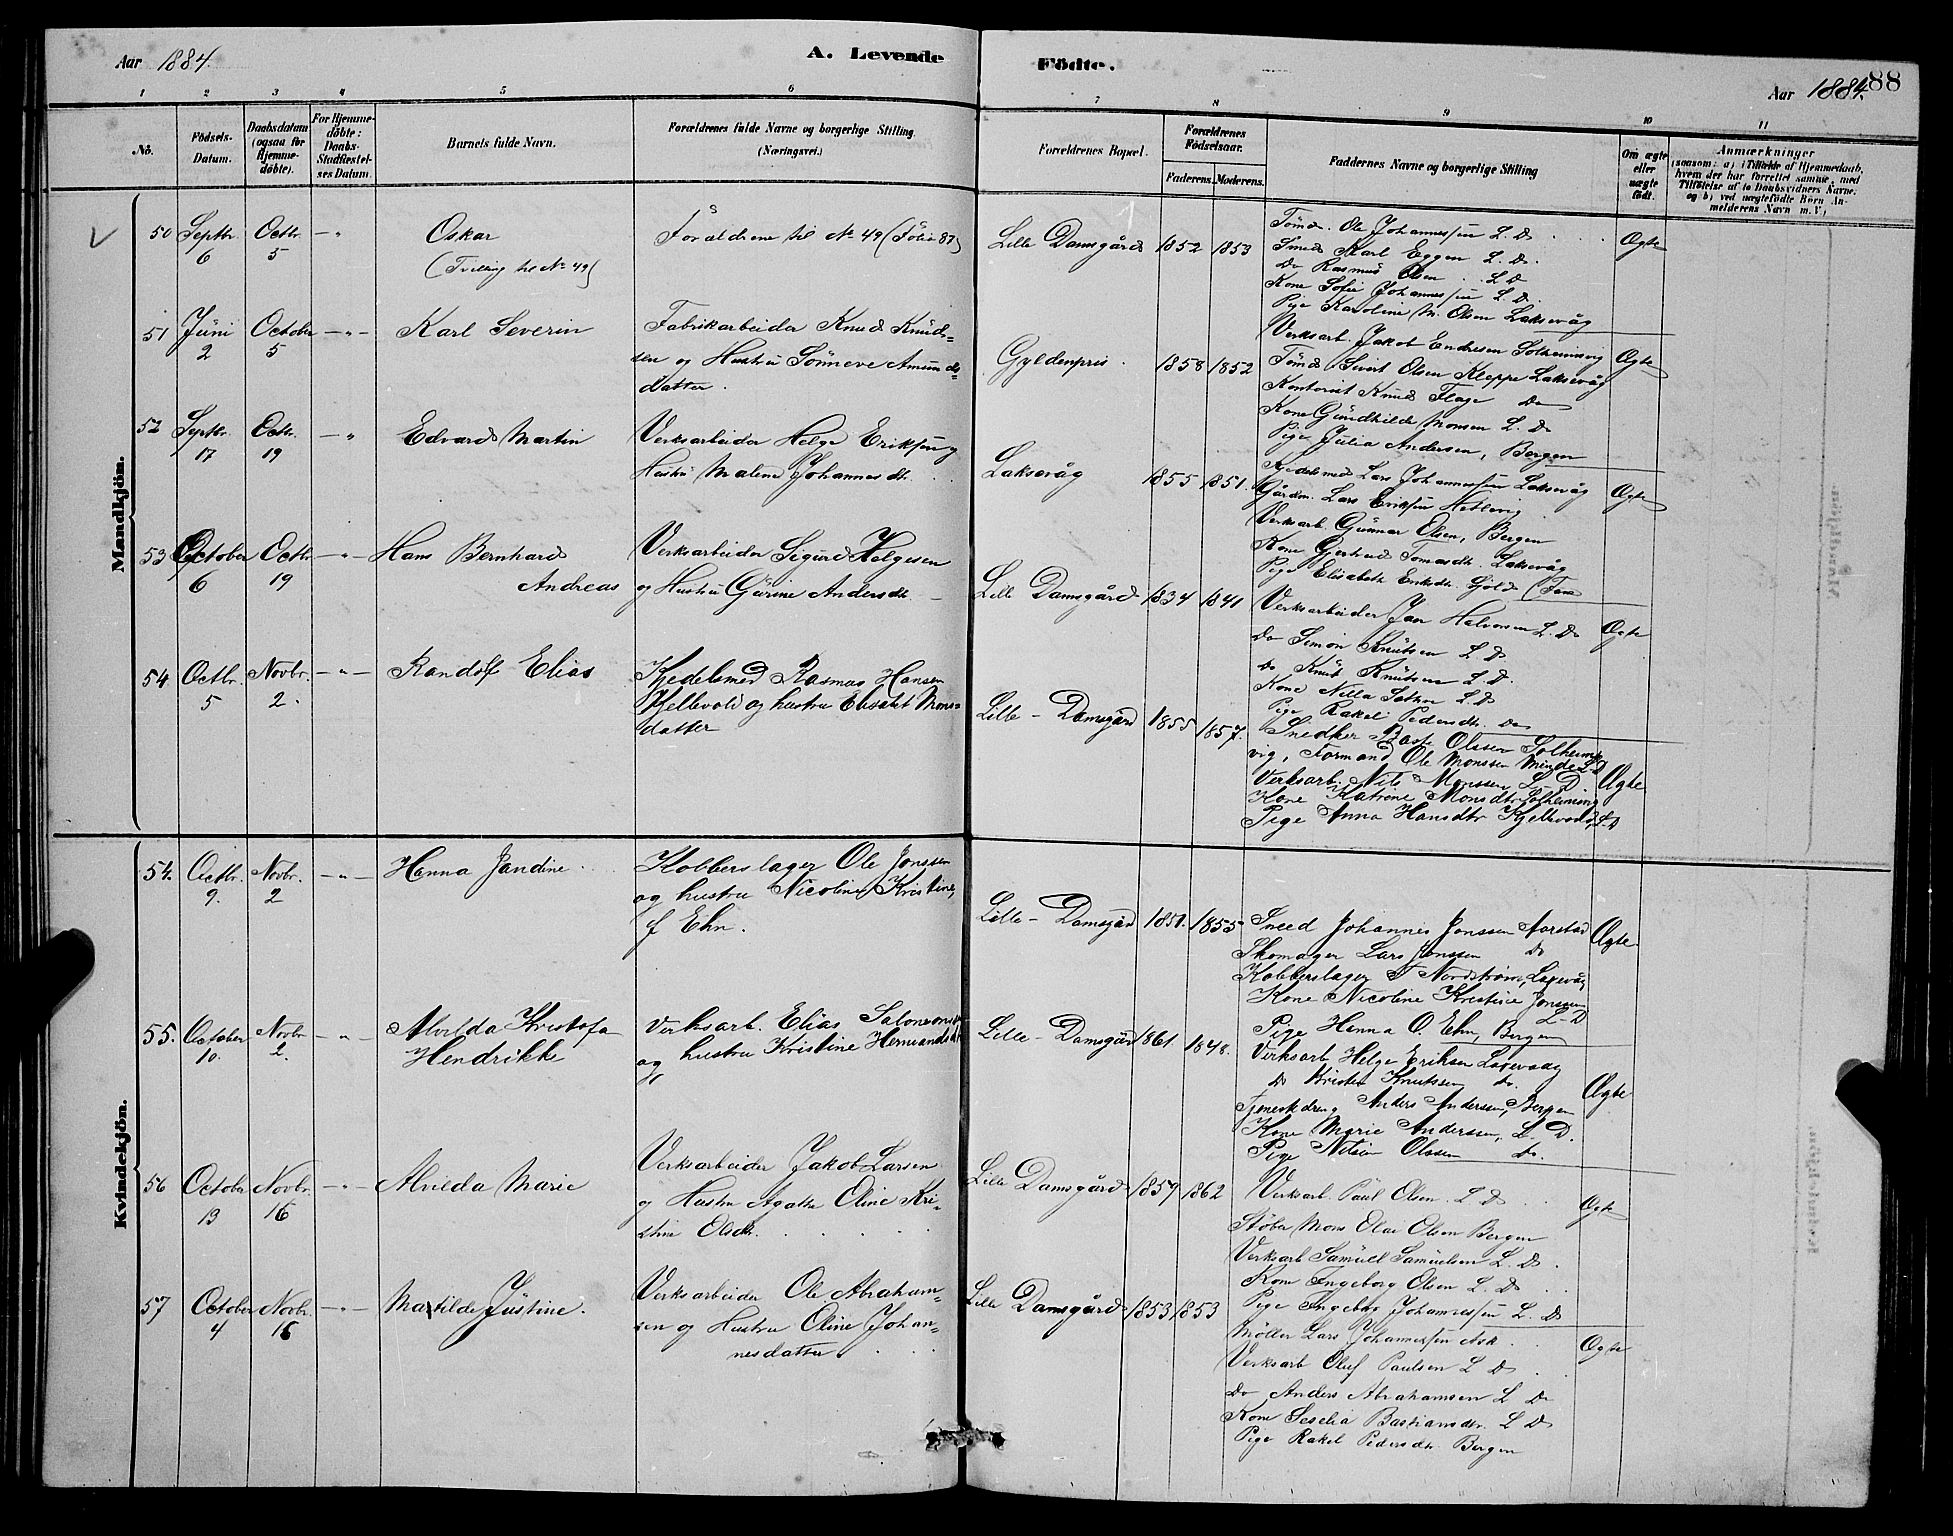 Aar 1884.
A. Levende
1 2 3 4 5 6
No.
Födsels-Datum.
Daabsdatum (ogsaa for Hjemme-döbte).
For Hjemme-döbte: Daabs-Stadfæstel-ses Datum.
Barnets fulde Navn.
Forældrenes fulde Navne og borgerlige Stilling.
(Næringsvei.)
Mandkjön.
50 Septbr. 6 Octbr. 5 — " Oskar
(Tvilling til No 49)
Forældrene til No 49 (Folio 87)
51 Juni 2 October 5 — " — Karl Severin
Fabrikarbeider Knud Knud-
sen og Hustru Sönneve Amunds-
datter.
52 Septbr. 17 Octbr. 19 — " Edvard Martin
Verksarbeider Helge Eriksen og
Hustru Malene Johannesdtr.
53 October 6 Octbr 19 — " — Hans Bernhard
Andreas
Verksarbeider Sigurd Helgesen
og Hustru Gurine Andersdtr. —
54 Octbr. 5 Novbr. 2. — " — Randolf Elias
Kjedelsmed Rasmus Hansen
Kjellevold og hustru Elisabet Mons-
datter
Kvindekjön.
54. Octbr. 9. Novbr. 2 — " — Hanna Jandine
Kobberslager Ole Jonssen
og hustru Nicoline Kristine,
f Ehn.
55. October 10. Novbr. 2. — " — Alvilda Kristofa
Hendrikke
Verksarb. Elias Salomonsen
og hustru Kristine Hermandsdtr
56 October 13 Novbr. 16 — " — Alvilda Marie
Verksarbeider Jakob Larsen
og Hustru Agathe Oline Kri-
stine Olsdtr.
57 October 4 Novbr. 16 — " — Matilde Justine.
Verksarbeider Ole Abraham-
sen og Hustru Oline Johan-
nesdatter.
Födte.
Aar 1884. 88
7 8 9 10 11
Forældrenes Bopæl.
Forældrenes Födselsaar.
Faderens. Moderens.
Faddernes Navne og borgerlige Stilling
Om ægte eller uægte födt.
Anmærkninger
(saasom: a) i Tilfælde af Hjemmedaab,
hvem der har forrettet samme, med
Tilföielse af to Daabsvidners Navne.
og b) ved uægtefödte Börn An-
melderens Navn m. V.)
Lille Damsgård 1852 1853
Tömd. Ole Johannessen L. D.
Smed Karl Eggen L. D.
Do Rasmus Olsen L D
Kone Sofie Johannessen L. D.
Pige Karoline M. Olsen Laksevåg
Ægte
Gyldenpris. 1858 1852
Verksarb. Jakob Endresen Solheimsvig
Tömd. Sivert Olsen Kleppe Laksevåg
Kontorist Knud Flage Do
Kone Gundhilde Monsen L. D
Pige Julia Andersen, Bergen
Ægte
Laksevåg 1855 1851.
Kjedelsmed Lars Johannessen Laksevåg
Gårdm. Lars Eriksen
Verksarb. Gunnar Olsen, Bergen
Kone Gjertrud Tomasdtr. Laksevåg
Pige Elisabeth Eriksdtr.
Ægte
Lille Damsgård 1834 1841
Verksarbeider Jan Halvorsen L. D
Do Simon Knutsen L D
Do Knut Knutsen L D.
Kone Nilla L D
Pige Rakel Pedersdtr. Do
Ægte
Lille - Damsgård 1855 1857.
Snedker Olsen Solheims-
vig, Formand Ole Monssen Minde L. D
Verksarb. Nils Monssen L. D.
Kone Katrine Monsdtr Solheimsvig
Pige Anna Hansdtr Kjellevold, L. D
Ægte
Lille - Damsgård 1851. 1855
Smed Johannes Jonssen Aarstad
Skomager Lars Jonssen Do
Kobberslager T Nordström, Laxevåg
Kone Nicoline Kristine Jonssen
L-D
Pige Hanna O. Ehn, Bergen
Ægte
Lille - Damsgård 1861. 1848.
Verksarb Helge Eriksen Laxevaag
Do Krister Knutssen do.
Tjenestedreng Anders Andersen, Bergen
Kone Marie Anderssen, L. D.
Pige Olssen Do.
Ægte
Lille Damsgård 1859 1862
Verksarb. Paul Olsen. L D
Støber Mons Olai Olsen Bergen
Verksarb Samuel Samuelsen L. D.
Kone Ingeborg Olsen L. D.
Pige Ingeborg Johannessen L. D
Ægte
Lille Damsgård 1853 1853
Möller Lars Johannessen Ask
Verksarb Oluf Paulsen L D
Do Anders Abrahamsen L D
Kone Seselia Bastiansdtr. L D
Pige Rakel Pedersdtr Bergen
Ægte